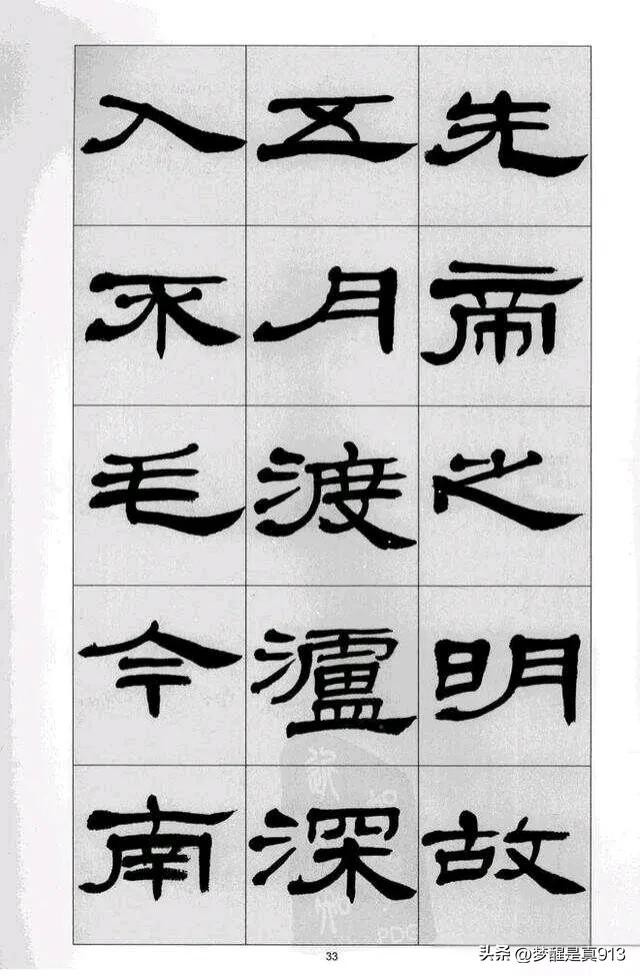 先帝之明故
五月渡瀘深
入不毛今南
33
头条 @梦醒是真913